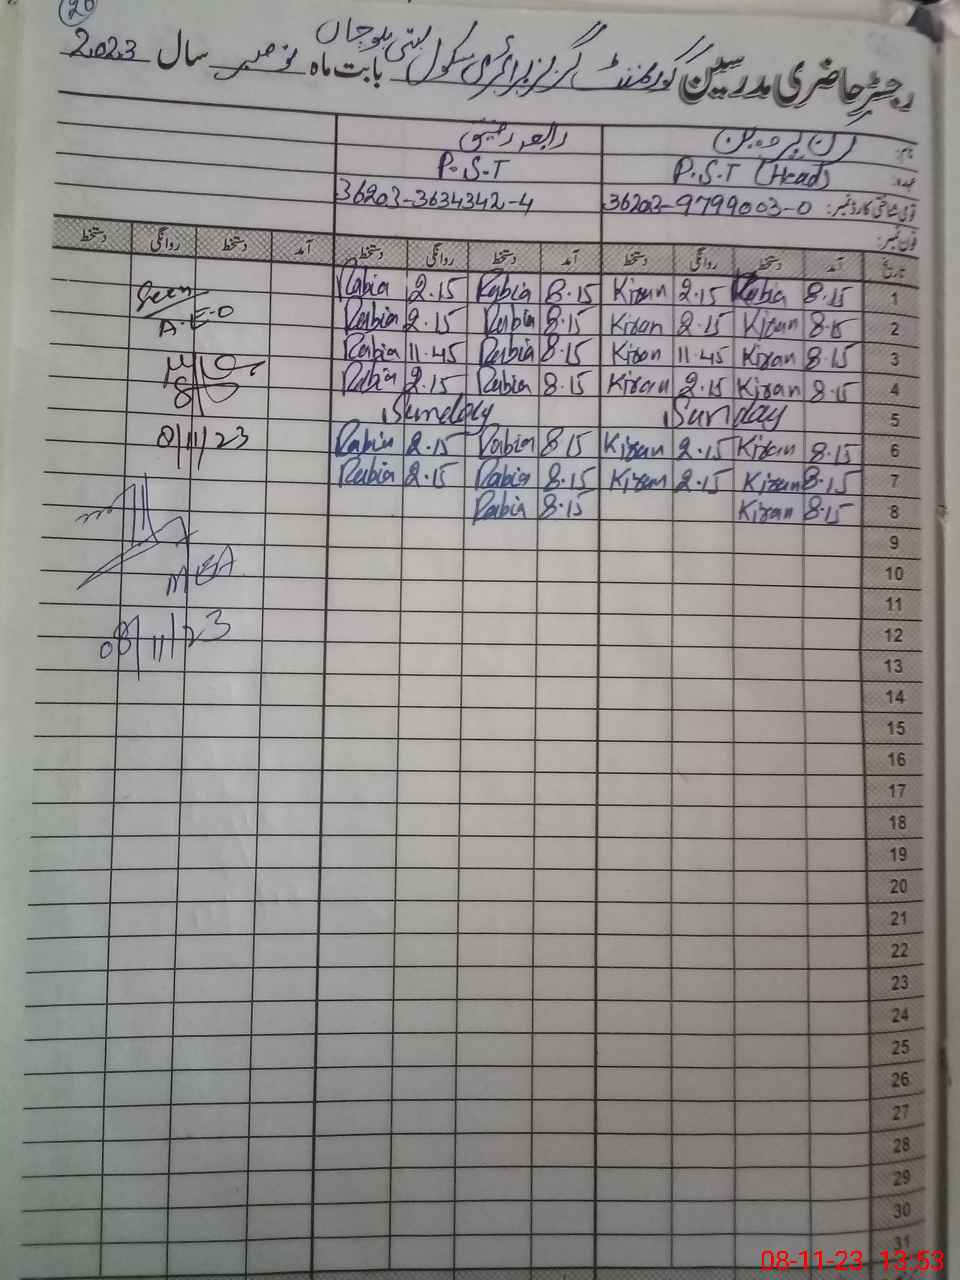 20
رجسٹر حاضری مدرسین گورنمنٹ گرلز پرائمری سکول بستی بلوچاں بابت ماہ نومبر سال 2023
نام: کرن پروین رابعہ رفیق
عہدہ: P.S.T (Head) P.S.T
قومی شناختی کارڈ نمبر: 36203-9799003-0 36203-3634342-4
فون نمبر:
تاریخ آمد دستخط روانگی دستخط آمد دستخط روانگی دستخط آمد دستخط روانگی دستخط
1 8.15 Rabia 2.15 Kiran 8.15 Rabia 2.15 Rabia
2 8.15 Kiran 2.15 Kiran 8.15 Rabia 2.15 Rabia
3 8.15 Kiran 11.45 Kiran 8.15 Rabia 11.45 Rabia
4 8.15 Kiran 2.15 Kiran 8.15 Rabia 2.15 Rabia
5 Sunday Sunday
6 8.15 Kiran 2.15 Kiran 8.15 Rabia 2.15 Rabia
7 8.15 Kiran 2.15 Kiran 8.15 Rabia 2.15 Rabia
8 8.15 Kiran 8.15 Rabia
9
10
11
12
13
14
15
16
17
18
19
20
21
22
23
24
25
26
27
28
29
30
31
Seen
A.E.O
8/11/23
MEA
08/11/23
08-11-23 13:53